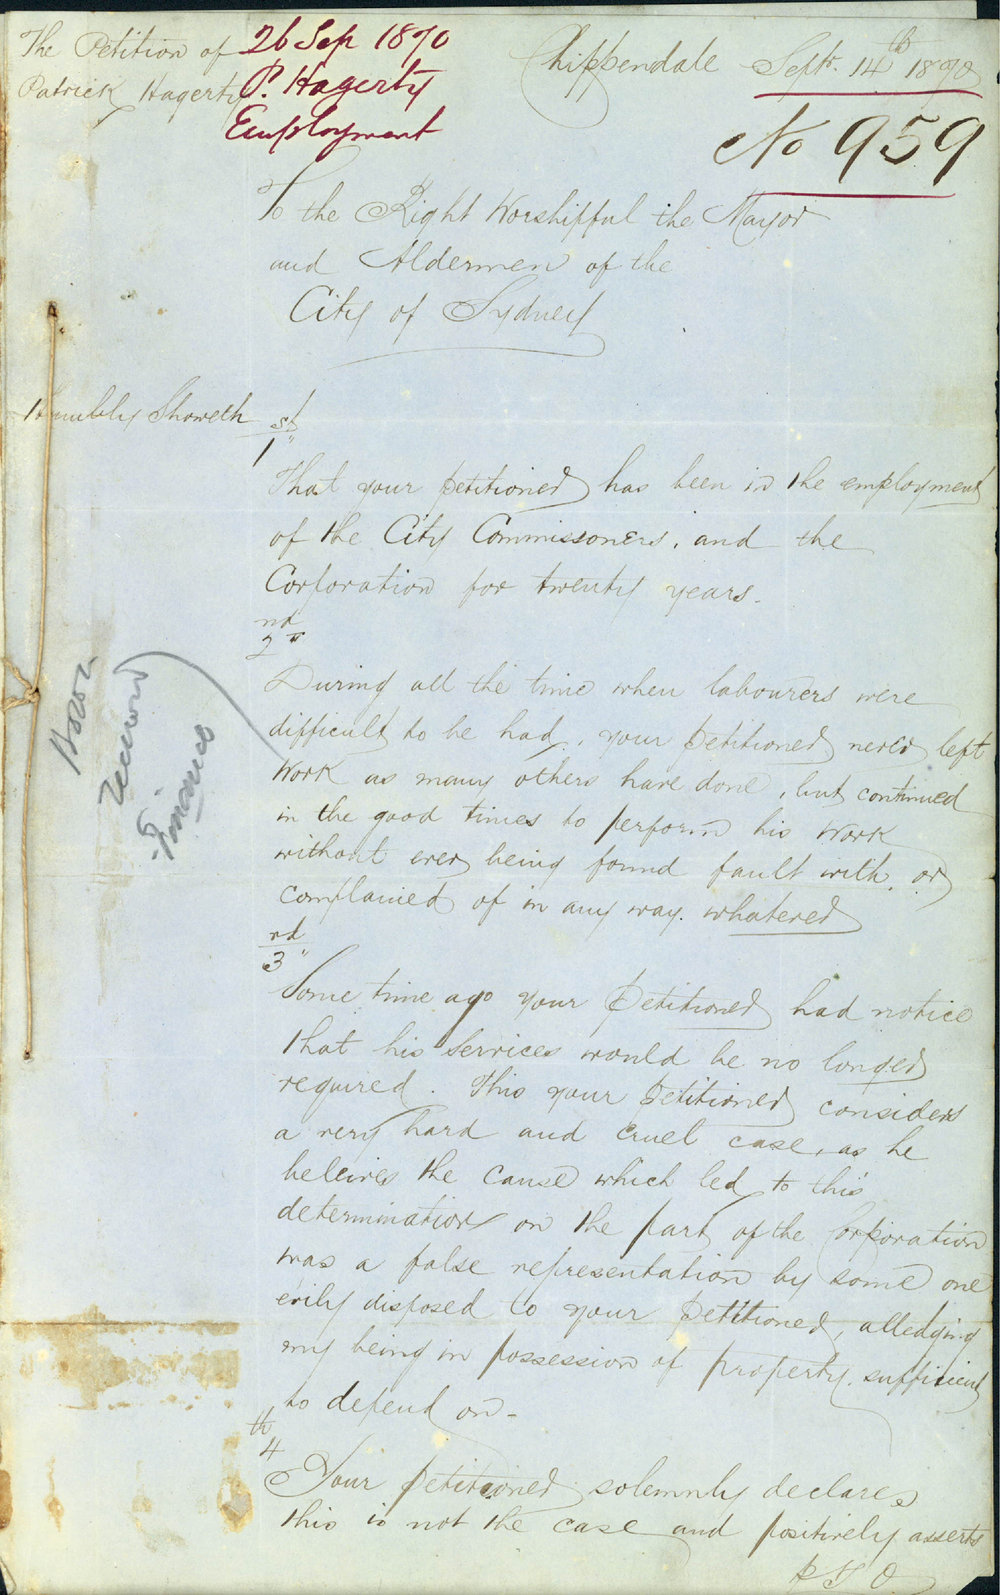 The Petition of
Patrick Hagerty
26 Sep 1870
P. Hagerty
Employment
Chippendale Septr. 14th 1870
No 959
To the Right Worshipful the Mayor
and Aldermen of the
City of Sydney
Humbly Showeth
1st
That your petitioner has been in the employment
of the City Commissoners, and the
Corporation for twenty years.
2nd
During all the time when labourers were
difficult to be had, your petitioner never left
Work as many others have done, but continued
in the good times to perform his Work
without ever being found fault with or
complained of in any way whatever
3rd
Some time ago your petitioner had notice
that his services would be no longer
required. This your petitioner considers
a very hard and cruel case, as he
beleives the cause which led to this
determination on the part of the Corporation
was a false representation by some one
evily disposed to your petitioner, alledging
my being in possession of property sufficient
to depend on -
4th
Your petitioner solemnly declares
this is not the case and positively asserts
P T O
Finance